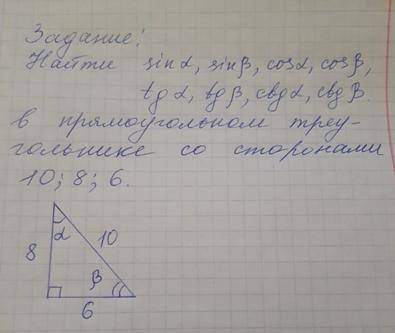 Задание:
Найти sinα, sinβ, cosα, cosβ,
tgα, tgβ, ctgα, ctgβ.
в прямоугольном треу-
гольнике со сторонами
10; 8; 6.
α
8
10
β
6